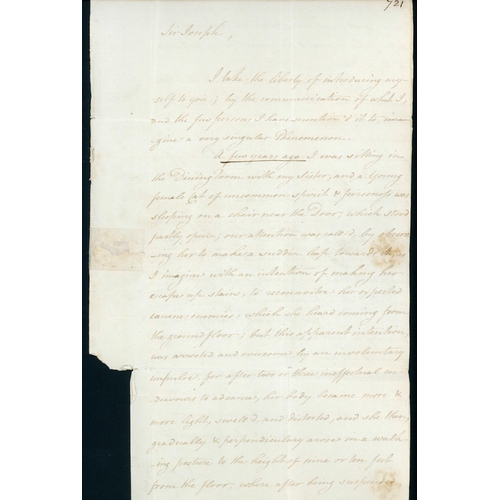 721
Sir Joseph,
I take the liberty of introducing my-
self to you; by the communication of what I,
and the few persons I have mention'd it to, ima
gine a very singular Phenomenon.
A few years ago I was sitting in
the Dining room with my Sister, and a Young
female Cat of uncommon spirit & fierceness was
sleeping on a chair near the Door; which stood
partly open; our attention was call'd, by observ
ing her to make a sudden leap towards it,
I imagine with an intention of making her
escape up stairs, to reconnoitre her expected
canine enemies; which she heard coming from
the ground floor; but this apparent intention
was arrested and overcome by an involuntary
impulse, for after two or three ineffectual en
deavours to advance, her body became more &
more light, swell'd, and distorted, and she then
gradually & perpendicularly arose in a walk
ing posture to the height of nine or ten feet
from the floor; where after being suspended